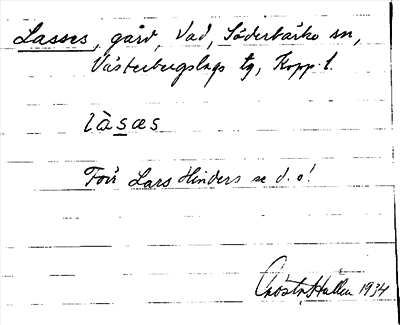 Lasses, gård, Vad, Söderbärke sn,
Västerbergslags tg, Kopp. l.
làsæs
Förr Lars Hinders se d. o!
Gösta Hallén 1934